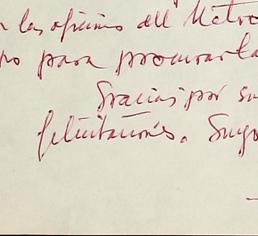 las oficinas del Metro
po para procurarla
Gracias por su
felicitaciones. Suyo